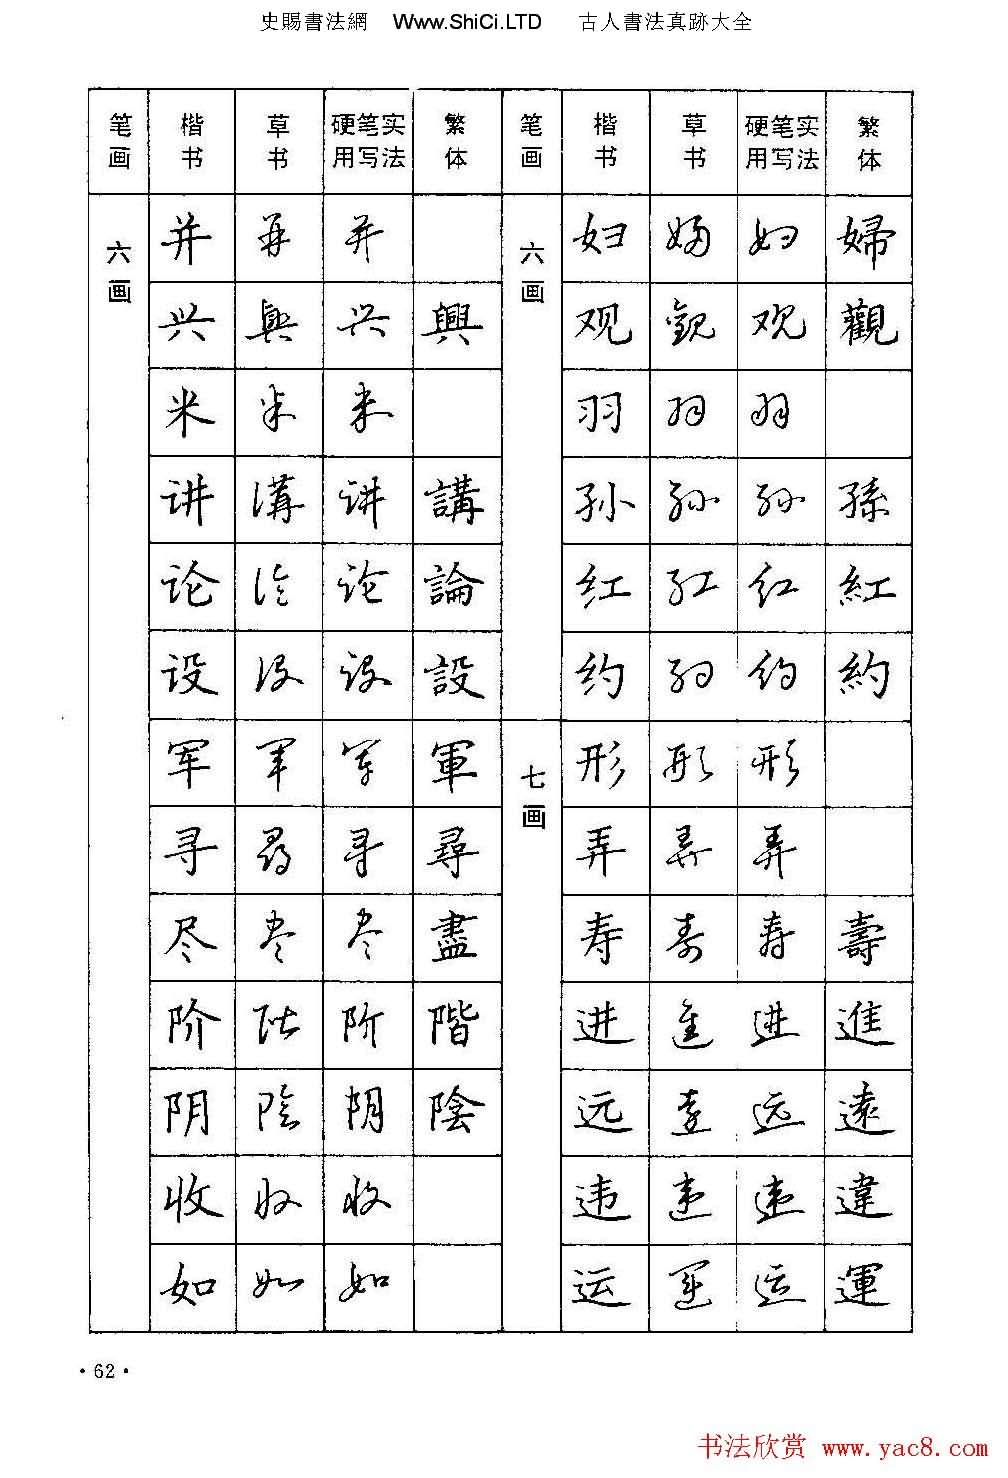 史賜書法網 Www.ShiCi.LTD 古人書法真跡大全
笔画 楷书 草书 硬笔实用写法 繁体 笔画 楷书 草书 硬笔实用写法 繁体
六画 并 并 并 六画 妇 妇 妇 婦
兴 兴 兴 興 观 观 观 觀
米 米 米 羽 羽 羽
讲 講 讲 講 孙 孙 孙 孫
论 论 论 論 红 红 红 紅
设 设 设 設 约 约 约 約
军 军 军 軍 七画 形 形 形
寻 尋 寻 尋 弄 弄 弄
尽 尽 尽 盡 寿 寿 寿 壽
阶 阶 阶 階 进 進 进 進
阴 陰 阴 陰 远 远 远 遠
收 收 收 违 违 违 違
如 如 如 运 運 运 運
·62·
书法欣赏 www.yac8.com